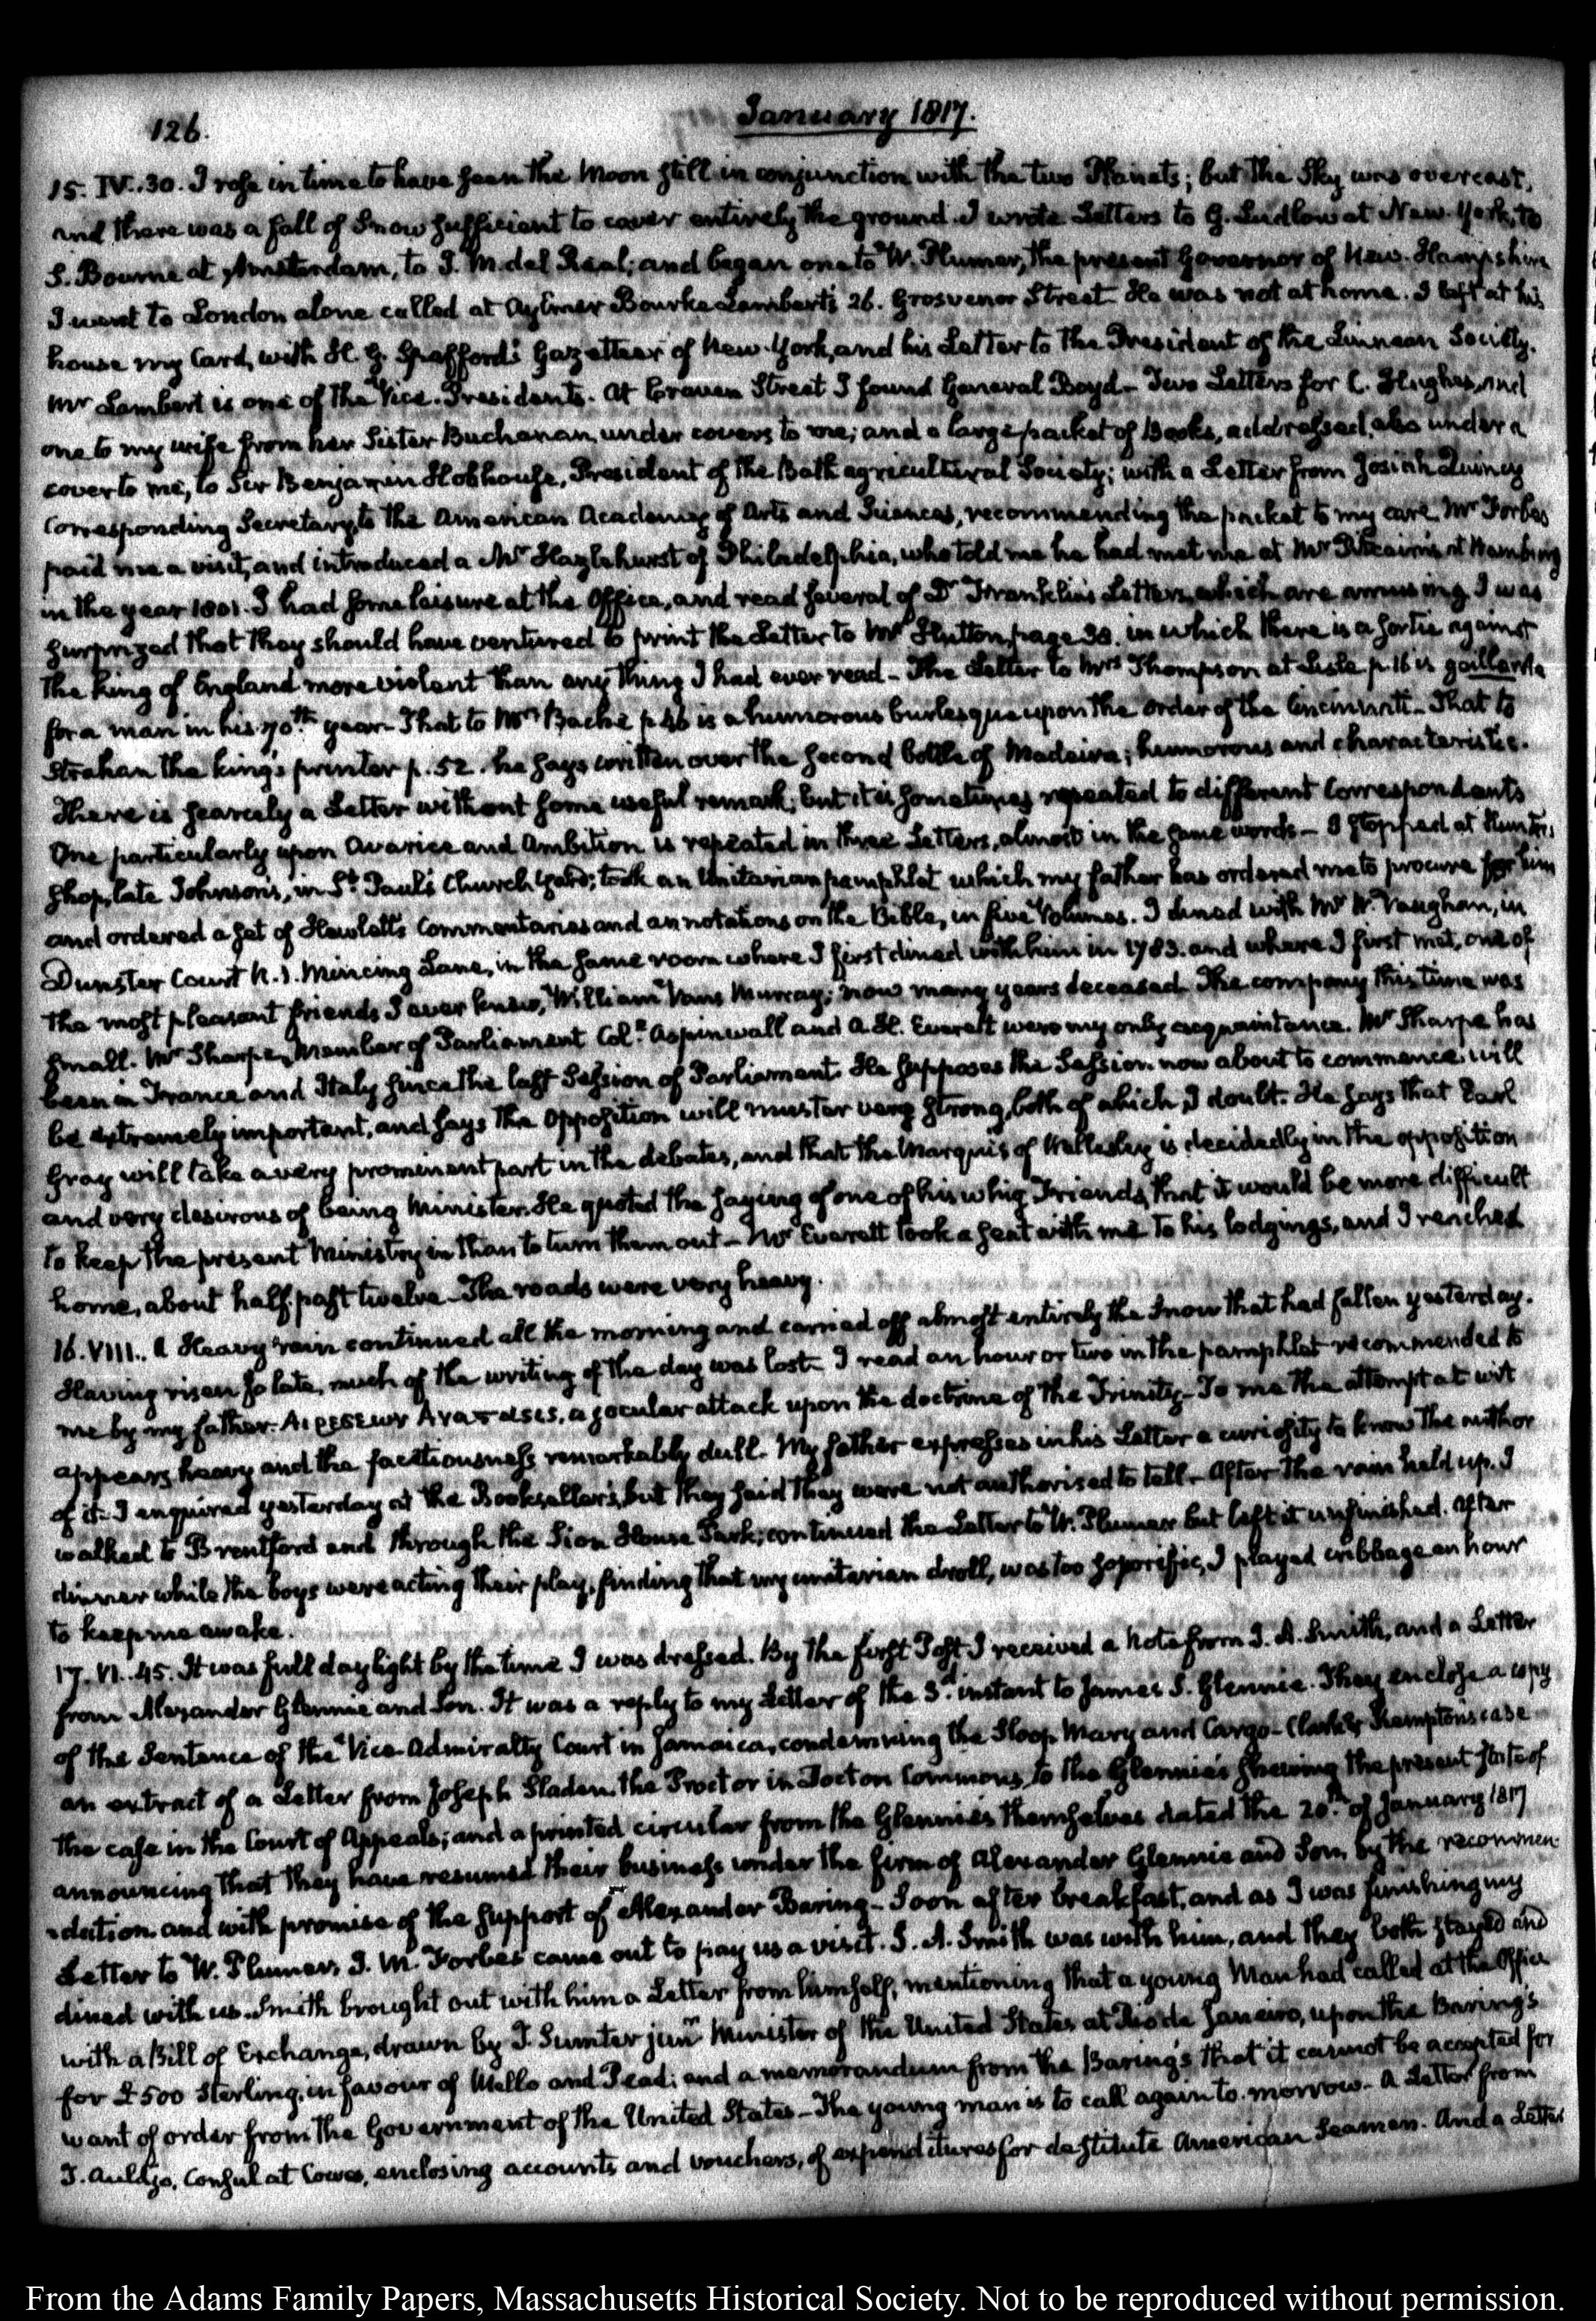 126.
January 1817.
15. IV..30. I rose in time to have seen the Moon still in conjunction with the two Planets; but the Sky was overcast,
and there was a fall of Snow sufficient to cover entirely the ground. I wrote Letters to G. Ludlow at New-York, to
S. Bourne at Amsterdam, to J. M. del Real; and began one to W. Plumer, the present Governor of New-Hampshire
I went to London alone called at Aylmer Bourke Lambert's 26. Grosvenor Street He was not at home. I left at his
house my Card, with H. G. Spafford's Gazetteer of New-York, and his Letter to the President of the Linnean Society.
Mr Lambert is one of the Vice-Presidents. At Craven Street I found General Boyd— Two Letters for C. Hughes, and
one to my wife from her Sister Buchanan, under covers to me; and a large packet of Books, addressed, also under a
cover to me, to Sir Benjamin Hobhouse, President of the Bath agricultural Society; with a Letter from Josiah Quincy
Corresponding Secretary to the American Academy of Arts and Sciences, recommending the packet to my care. Mr Forbes
paid me a visit, and introduced a Mr Hazlehurst of Philadelphia, who told me he had met me at Mr Pitcairn's at Hamburg
in the year 1801. I had some leisure at the Office, and read several of Dr Franklin's Letters, which are amusing. I was
surprized that they should have ventured to print the Letter to Mr Hutton, page 38. in which there is a sortie against
the king of England more violent than any thing I had ever read— The Letter to Mrs Thompson at Lisle p. 16 is gaillarde
for a man in his 70.th year— That to Mrs Bache p. 46 is a humorous burlesque upon the order of the Cincinnati— That to
Strahan the king's printer p. 52. he says written over the second bottle of Madeira; humorous and characteristic.
There is scarcely a Letter without some useful remark; but it is sometimes repeated to different Correspondents
One particularly upon Avarice and Ambition is repeated in three Letters, almost in the same words— I stopped at Hunter's
shop, late Johnson's, in St. Paul's Church Yard; took an Unitarian pamphlet which my father has ordered me to procure for him
and ordered a set of Hewlett's Commentaries and annotations on the Bible, in five Volumes. I dined with Mr W. Vaughan, in
Dunster Court N. 1. Mincing Lane, in the same room where I first dined with him in 1783. and where I first met, one of
the most pleasant friends I ever knew, William Vans Murray; now many years deceased. The company this time was
small. Mr Sharpe, Member of Parliament Coll. Aspinwall and A. H. Everett were my only acquaintance. Mr Sharpe has
been in France and Italy since the last Session of Parliament. He supposes the Session now about to commence will
be extremely important, and says the opposition will muster very strong, both of which I doubt. He says that Earl
Gray will take a very prominent part in the debates, and that the Marquis of Wellesley is decidedly in the opposition
and very desirous of being Minister. He quoted the saying of one of his whig Friends, that it would be more difficult
to keep the present Ministry in than to turn them out— Mr Everett took a seat with me to his lodgings, and I reached
home, about half past twelve— The roads were very heavy.
16. VIII.. A Heavy rain continued all the morning and carried off almost entirely the Snow that had fallen yesterday.
Having risen so late, much of the writing of the day was lost. I read an hour or two in the pamphlet recommended to
me by my father. a jocular attack upon the doctrine of the Trinity— To me the attempt at wit
appears heavy and the facetiousness remarkably dull. My father expresses in his Letter a curiosity to know the author
of it— I enquired yesterday at the Bookseller's, but they said they were not authorised to tell— After the rain held up. I
walked to Brentford and through the Sion House Park; continued the Letter to W. Plumer but left it unfinished. After
dinner while the boys were acting their play, finding that my unitarian droll, was too soporific, I played cribbage an hour
to keep me awake.
17. VI..45. It was full daylight by the time I was dressed. By the first Post I received a Note from J. A. Smith, and a Letter
from Alexander Glennie and Son. It was a reply to my Letter of the 3.d instant to James S. Glennie. They enclose a copy
of the Sentence of the Vice-Admiralty Court in Jamaica, condemning the Sloop Mary and Cargo— Clark & Kempton's case
an extract of a Letter from Joseph Sladen, the Proctor in Docton Commons, to the Glennie's shewing the present state of
the case in the Court of Appeals; and a printed circular from the Glennie's themselves dated the 20.th of January 1817
announcing that they have resumed their business under the firm of Alexander Glennie and Son, by the recommen-
-dation and with promise of the support of Alexander Baring— Soon after breakfast, and as I was finishing my
Letter to W. Plumer, J. M. Forbes came out to pay us a visit. J. A. Smith was with him, and they both stayed and
dined with us. Smith brought out with him a Letter from himself, mentioning that a young Man had called at the Office
with a Bill of Exchange, drawn by T. Sumter junr Minister of the United States at Rio de Janeiro, upon the Baring's
for £500 Sterling, in favour of Mello and Pead; and a memorandum from the Baring's that it cannot be accepted for
want of order from the Government of the United States— The young man is to call again to-morrow— A Letter from
T. Auldjo, Consul at Cowes, enclosing accounts and vouchers, of expenditures for destitute American Seamen. And a Letter
From the Adams Family Papers, Massachusetts Historical Society. Not to be reproduced without permission.